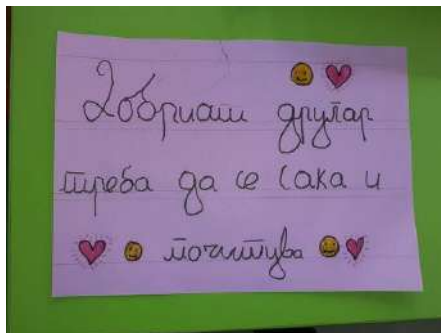 Добриот другар
треба да се сака и
почитува